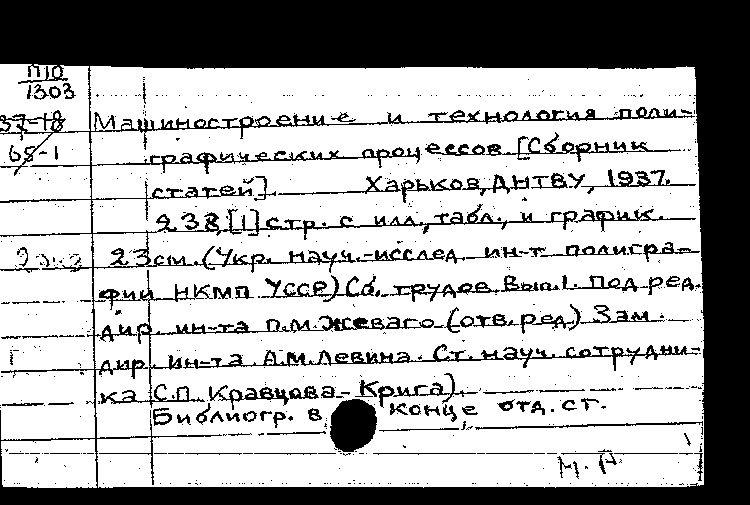 П10
1303
37-18
65-1
Машиностроение и технология поли-
графических процессов [Сборник
статей]. Харьков, ДНТВУ, 1937.
238, [1] стр. с илл., табл., и график.
2 экз 23 см. (Укр. науч.-исслед. ин-т полигра-
фии НКМП УССР) Сб. трудов. Вып. 1. Под ред.
дир. ин-та П.М. Жеваго (отв. ред.) Зам.
дир. ин-та А.М. Левина. Ст. науч. сотрудни-
ка С.П. Кравцова-Крига).
Библиогр. в конце отд. ст.